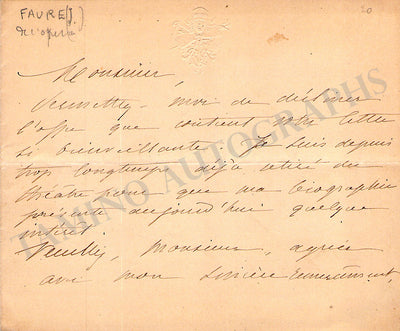 FAURE (J.
de l'opéra)
20
Monsieur,
Permettez-moi de décliner
l'offre que contient votre lettre
si bienveillante. Je suis depuis
trop longtemps déjà retiré du
théâtre pour que ma biographie
présente aujourd'hui quelque
intérêt.
Veuillez, Monsieur, agréer
avec mon sincère remerciement,
TAMINO AUTOGRAPHS